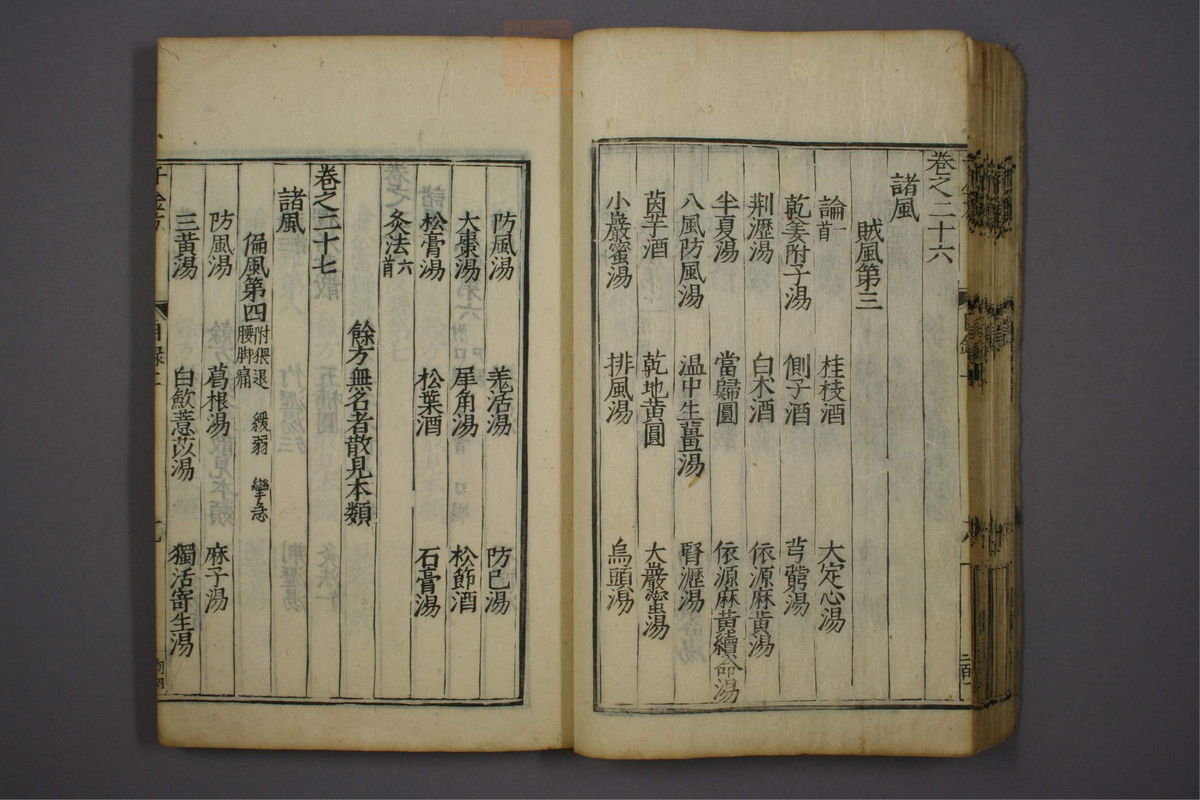 卷之二十六
諸風
賊風第三
論一首 桂枝酒 大定心湯
乾姜附子湯 側子酒 芎藭湯
荆瀝湯 白朮酒 依源麻黄湯
半夏湯 當歸圓 依源麻黄續命湯
八風防風湯 温中生薑湯 腎瀝湯
茵芋酒 乾地黄圓 大巖蜜湯
小巖蜜湯 排風湯 烏頭湯
防風湯 羌活湯 防已湯
大棗湯 犀角湯 松節酒
松膏湯 松葉酒 石膏湯
灸法六首
餘方無名者散見本類
卷之二十七
諸風
偏風第四 附猥退 腰脚痛 緩弱 攣急
防風湯 葛根湯 麻子湯
三黄湯 白歛薏苡湯 獨活寄生湯